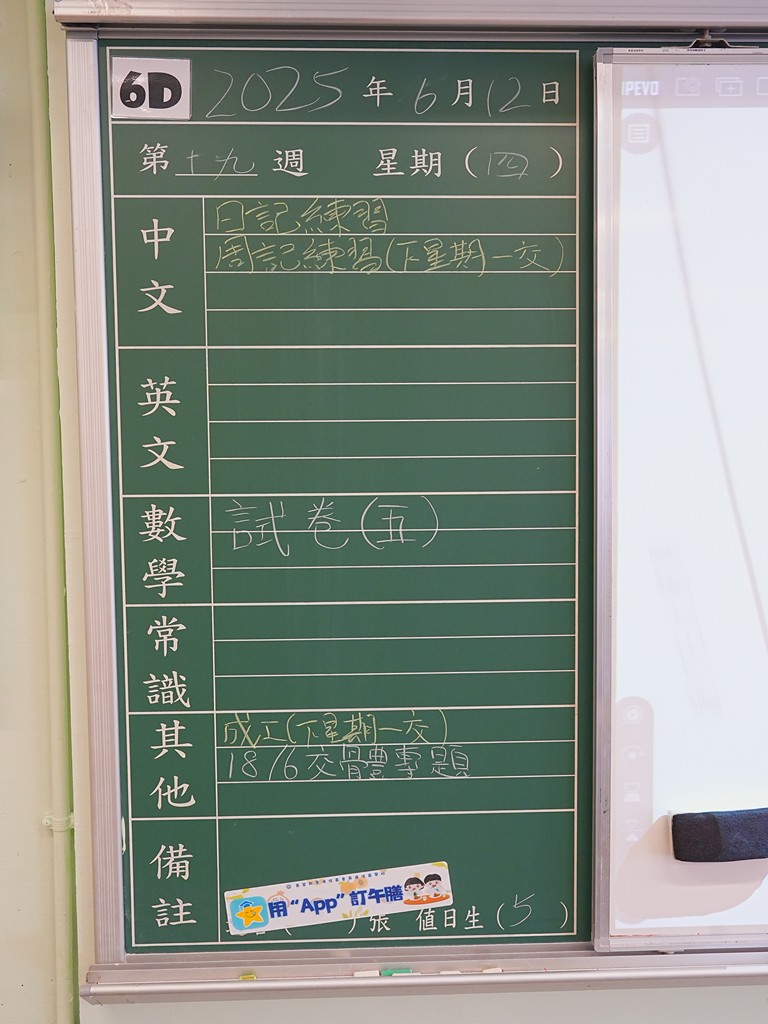 6D 2025年6月12日
第十九週 星期(四)
中文
日記練習
周記練習(下星期一交)
英文
數學
試卷(五)
常識
其他
成工(下星期一交)
18/6交骨豊專題
備註
用“App”訂午膳
張 值日生(5)
IPEVO